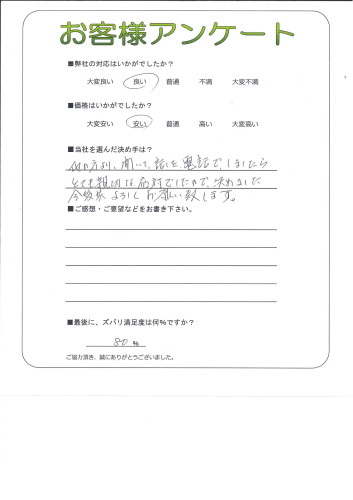 お客様アンケート
■弊社の対応はいかがでしたか？
大変良い 良い 普通 不満 大変不満
■価格はいかがでしたか？
大変安い 安い 普通 高い 大変高い
■当社を選んだ決め手は？
他の方より、聞いて、話を、電話で、しましたら
とても親切な応対でしたので、決めました
今後共よろしくお願い致します。
■ご感想・ご要望などをお書き下さい。
■最後に、ズバリ満足度は何%ですか？
80 %
ご協力頂き、誠にありがとうございました。